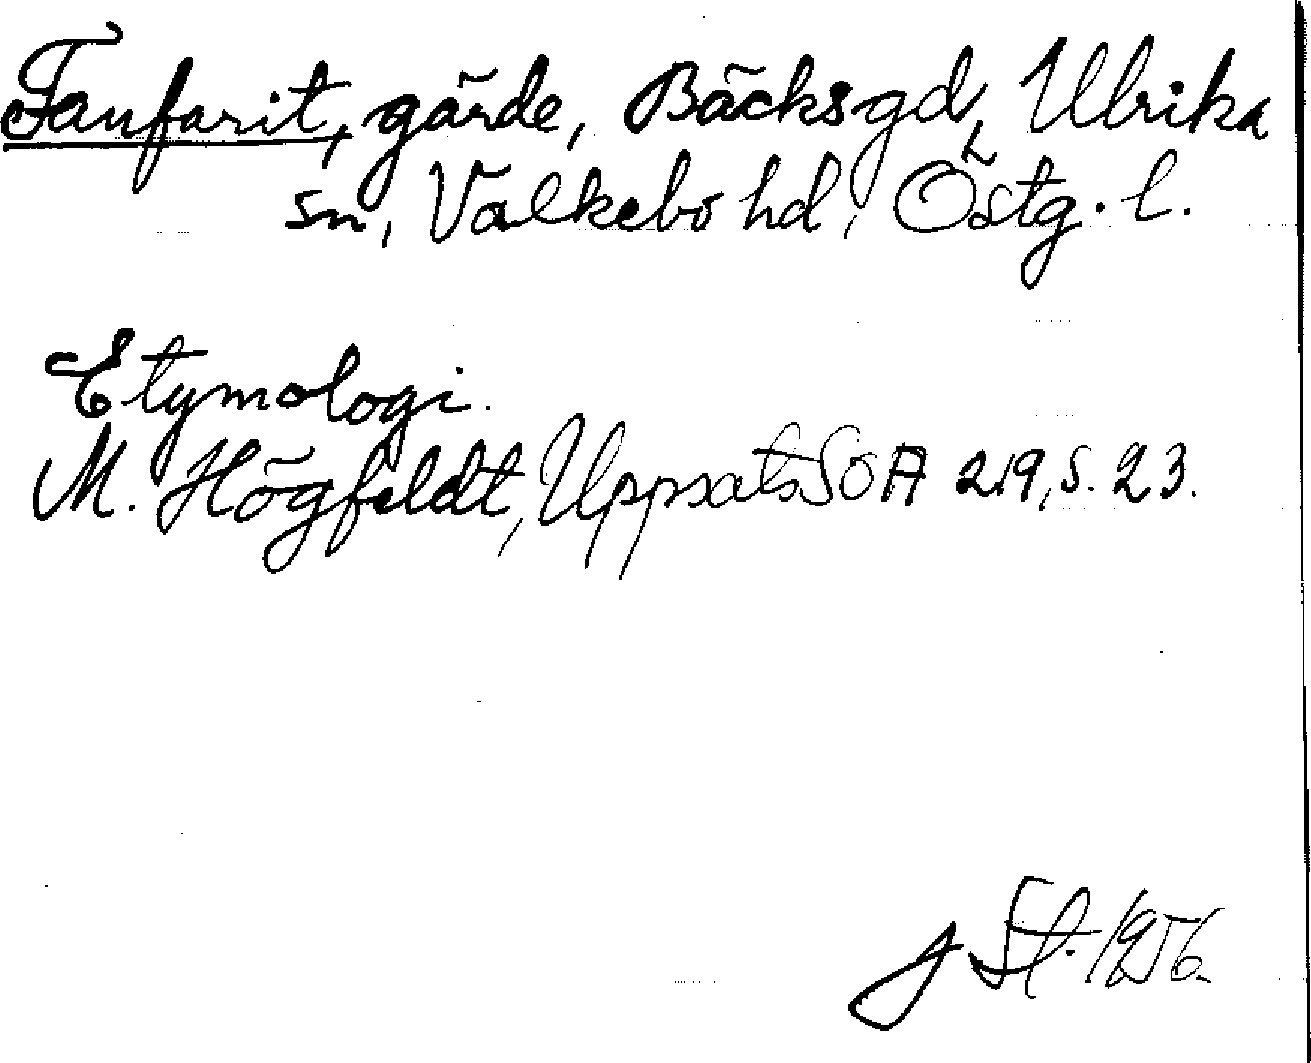 Fanfarit, gärde, Bäcksgd, Ulrika
sn, Valkebo hd, Östg. l.
Etymologi.
M. Högfeldt, Uppsats SOA 219, s. 23.
J St. 1956.